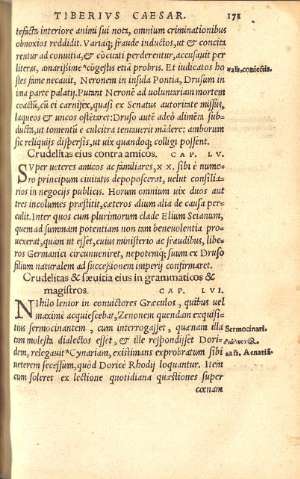 TIBERIVS CAESAR. 178
tefacta interiore animi sui nota, omnium criminationibus
obnoxios reddidit. Variaq; fraude inductos, ut & concita
rentur ad conuitia, & cōcitati perderentur, accusauit per
literas, amarissime cōgestis etiā probris. Et iudicatos ho
stes fame necauit, Neronem in insula Pontia, Drusum in
ima parte palatij. Putant Neronē ad voluntariam mortem
coactū, cū ei carnifex, quasi ex Senatus autoritate missus,
laqueos & uncos ostētaret: Druso autē adeò alimēta subdu
cta, ut tomentū è culcitra tentauerit mādere: amborum
sic reliquijs dispersis, ut uix quandoq; colligi possent.
Crudelitas eius contra amicos. CAP. LV.
SVper ueteres amicos ac familiares, XX. sibi è nume
ro principum ciuitatis depoposcerat, uelut consilia-
rios in negocijs publicis. Horum omnium uix duos aut
tres incolumes præstitit, cæteros alium alia de causa per
culit. Inter quos cum plurimorum clade Elium Seianum,
quem ad summam potentiam non tam beneuolentia pro
uexerat, quàm ut esset, cuius ministerio ac fraudibus, libe-
ros Germanici circumueniret, nepotemq; suum ex Druso
filium naturalem ad successionem imperij confirmaret.
Crudelitas & sæuitia eius in grammaticos &
magistros. CAP. LVI.
NIhilo lenior in conuictores Græculos, quibus uel
maximè acquiescebat, Zenonem quendam exquisi
tius sermocinantem, cum interrogasset, quænam illa
tam molesta dialectos esset, & ille respondisset Dori-
dem, relegauit Cynariam, existimans exprobratum sibi
ueterem secessum, quòd Doricè Rhodij loquantur. Item
cum soleret ex lectione quotidiana quæstiones super
cœnam
Sermocinari.